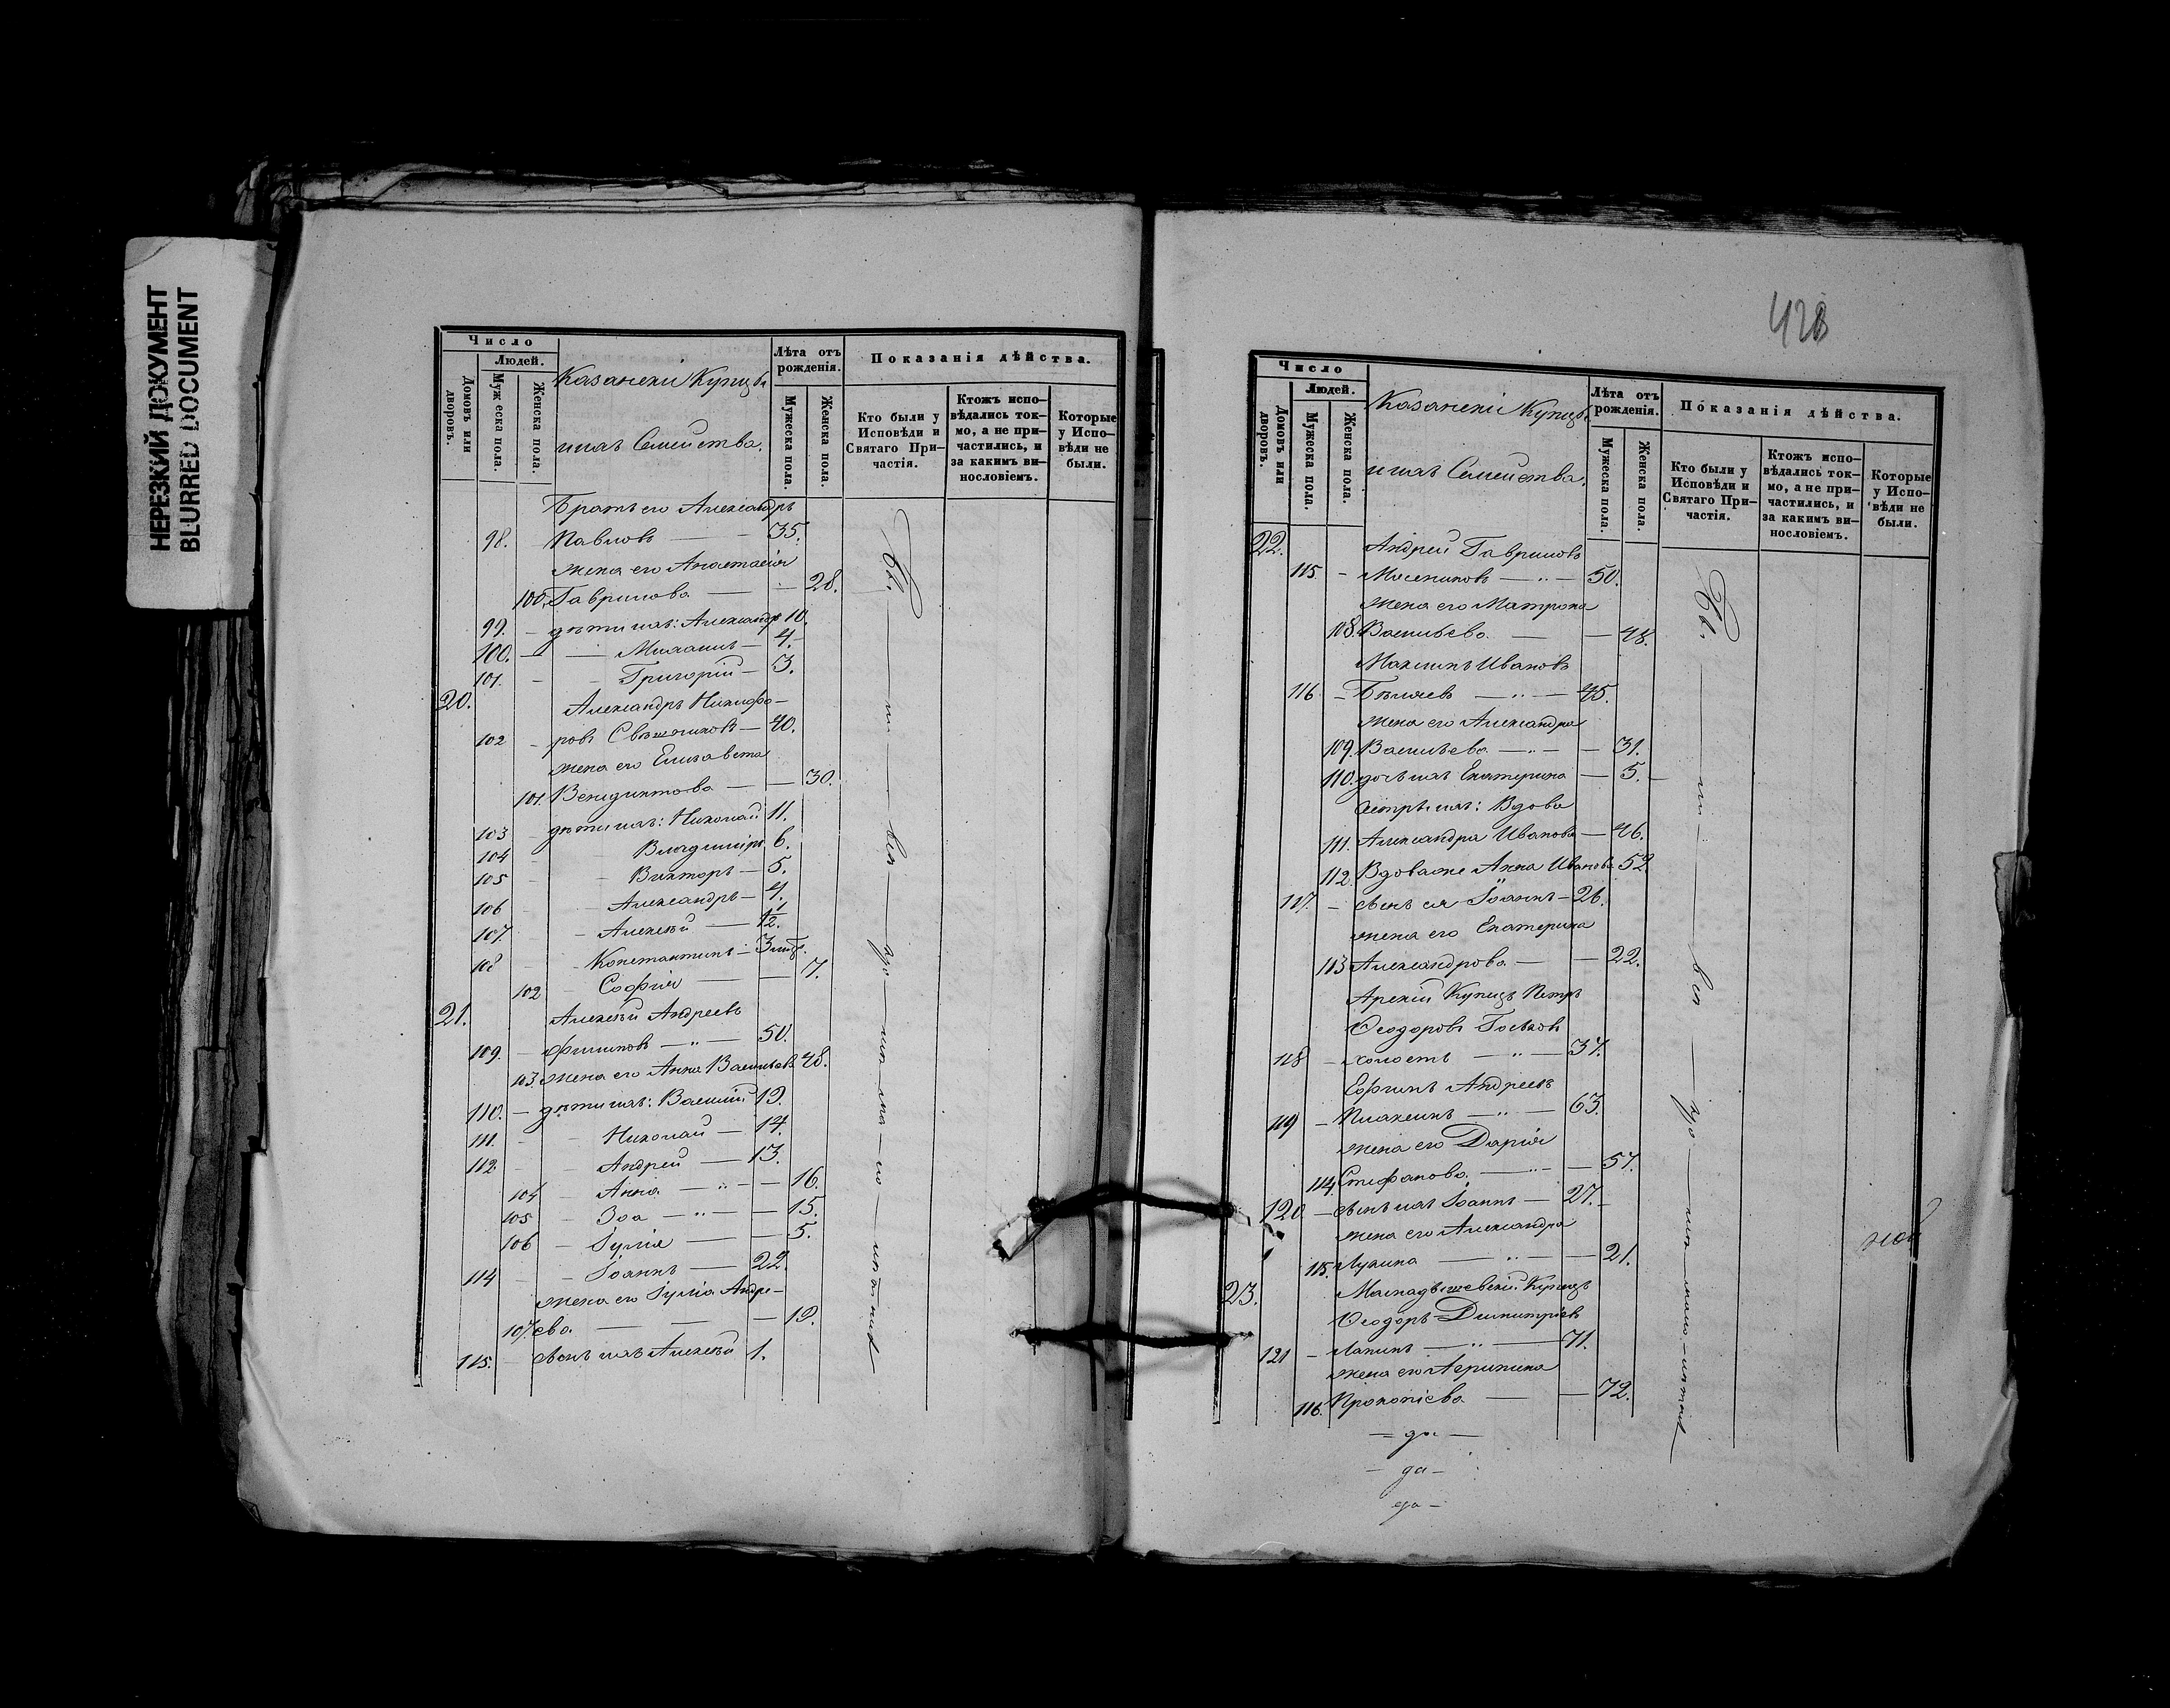 НЕРЕЗКИЙ ДОКУМЕНТ
BLURRED DOCUMENT
Число
Людей.
Домовъ или дворовъ.
Мужеска пола.
Женска пола.
Казанскіи Купцы
и ихъ Семейства.
Лѣта отъ рожденія.
Мужеска пола.
Женска пола.
Показанія дѣйства.
Кто были у Исповѣди и Святаго Причастія.
Ктожъ исповѣдались токмо, а не причастились, и за какимъ винословіемъ.
Которые у Исповѣди не были.
Братъ его Александръ
98. Павловъ — 35.
жена его Анастасія
100. Гаврилова — 28.
99. – дѣти ихъ: Александръ 10.
100. — Михаилъ — 4.
101. – Григорій — 3.
20. Александръ Никифо-
102 – ровъ Свѣшниковъ — 40.
жена его Елизавета
101. Бенидиктова — 30.
103 дѣти ихъ: Николай 11.
104 Владиміръ 6.
105 – Викторъ — 5.
106 Александръ — 4.
107. – Алексѣй — 1½.
108 – Константинъ — 3 мѣс.
102 – Софія — 7.
21. Алексѣй Андреевъ
109. – Филиповъ — 50.
103. жена его Анна Васильева 48.
110. – дѣти ихъ: Василій 19.
111. – Николай — 14.
112 – Андрей — 13.
104 – Анна — 16.
105 – Зоа — 15.
106 – Іулія — 5.
114 – Іоаннъ — 22.
жена его Іулія Андре-
107. ева — 19.
115. – сынъ ихъ Алексѣй 1.
428
Число
Людей.
Домовъ или дворовъ.
Мужеска пола.
Женска пола.
Казанскіи Купцы
и ихъ Семейства.
Лѣта отъ рожденія.
Мужеска пола.
Женска пола.
Показанія дѣйства.
Кто были у Исповѣди и Святаго Причастія.
Ктожъ исповѣдались токмо, а не причастились, и за какимъ винословіемъ.
Которые у Исповѣди не были.
22. Андрей Гавриловъ
115. – Месниковъ — 50.
жена его Матрона
108. Васильева — 48.
Максимъ Ивановъ
116 – Бѣляевъ — 45.
жена его Александра
109. Васильева — 31.
110. дочь ихъ Екатерина — 5.
сестры ихъ: Вдова
111. Александра Иванова — 46.
112 Вдова же Анна Иванова 52
117. – сынъ ея Іоаннъ — 26.
жена его Екатерина
113 Александрова — 22.
Арскій Купецъ Петръ
Ѳеодоровъ
118 – холостъ — 37.
Ефимъ Андреевъ
119 – — 63.
жена его Дарія
114. Стефанова — 57.
120 – сынъ ихъ Іоаннъ — 27.
жена его Александра
115. Лукина — 21.
23. Купецъ
Ѳеодоръ Димитріевъ
121 – Лапинъ — 71.
жена его Агрипина
116. Прокопіева — 72.
– да –
– да –